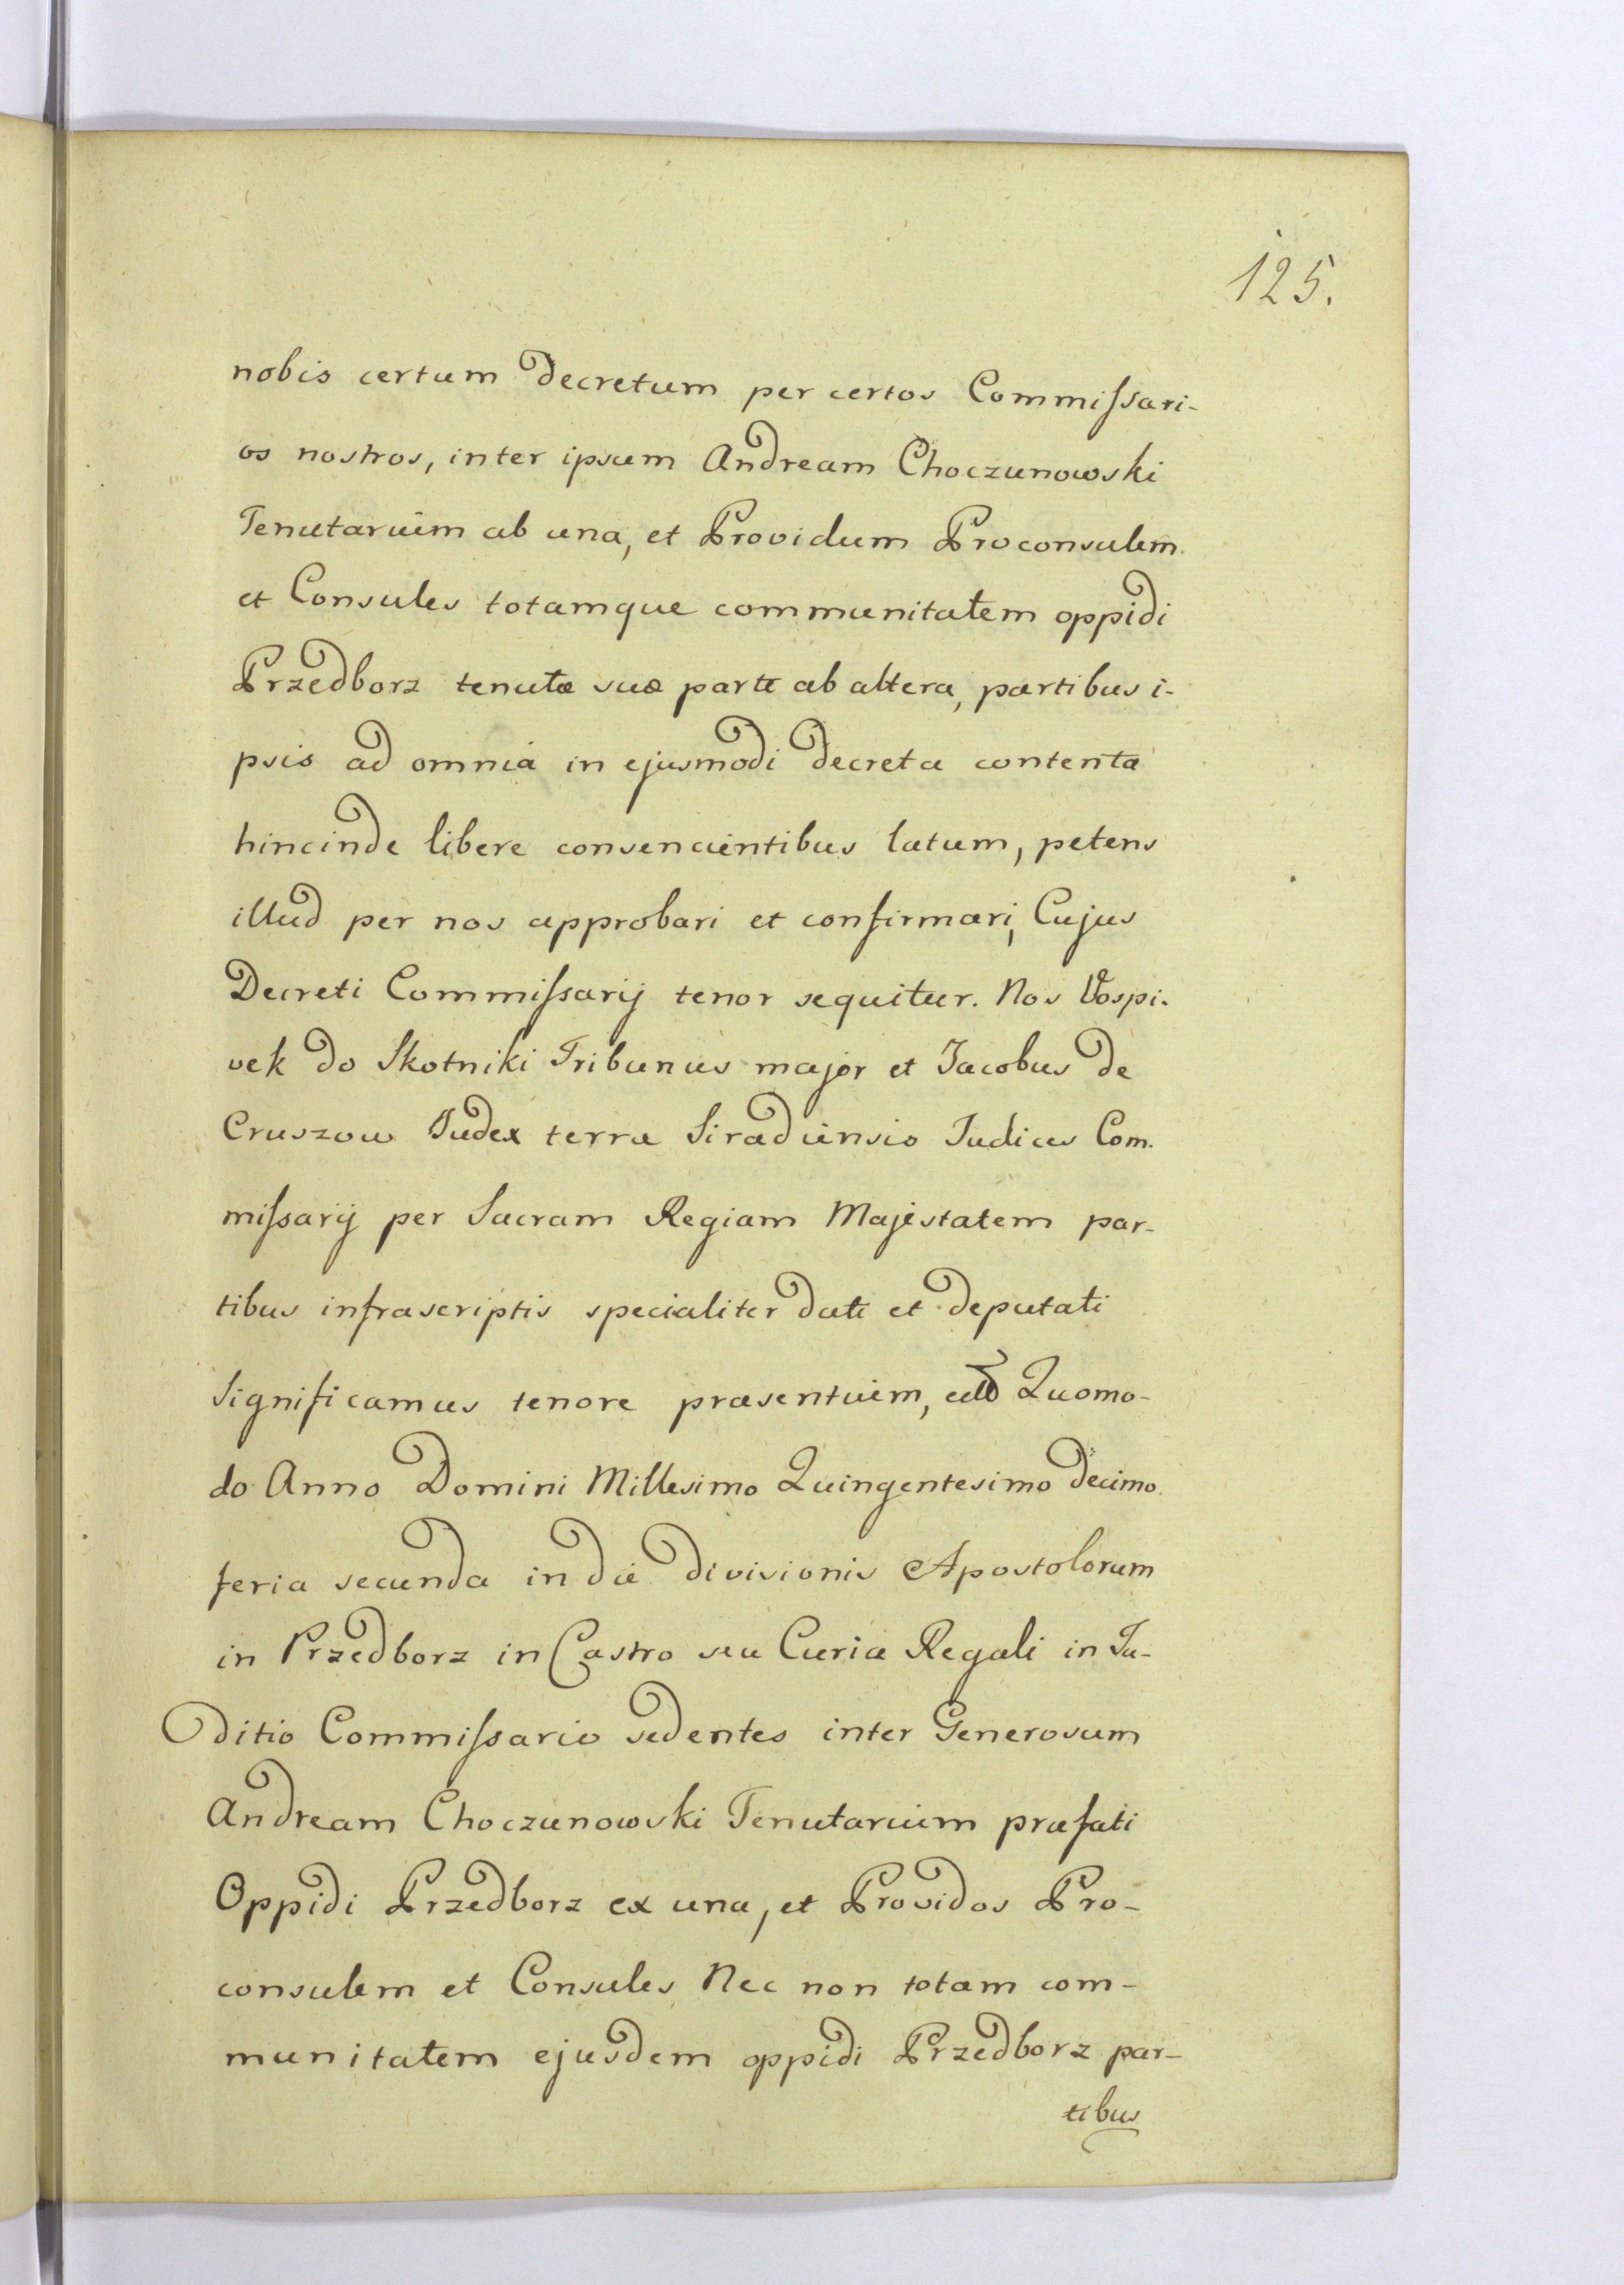 125.
nobis certum decretum per certos Commissari-
os nostros, inter ipsum Andream Choczunowski
Tenutarium ab una, et Providum Proconsulem
et Consules totamque communitatem oppidi
Przedborz tenutæ suæ parte ab altera, partibus i-
psis ad omnia in ejusmodi decreta contenta
hincinde libere consencientibus latum, petens
illud per nos approbari et confirmari, Cujus
Decreti Commissarij tenor sequitur. Nos
vek do Skotniki Tribunus major et Jacobus de
Cruszow Judex terræ Siradiensis Judices Com.
missarij per Sacram Regiam Majestatem par-
tibus infrascriptis specialiter dati et deputati
Significamus tenore præsentium, Quomo-
do Anno Domini Millesimo Quingentesimo decimo
feria secunda in die divisionis Apostolorum
in Przedborz in Castro seu Curia Regali in Ju-
ditio Commissario sedentes inter Generosum
Andream Choczunowski Tenutarium præfati
Oppidi Przedborz ex una, et Providos Pro-
consulem et Consules Nec non totam com-
munitatem ejusdem oppidi Przedborz par-
tibus